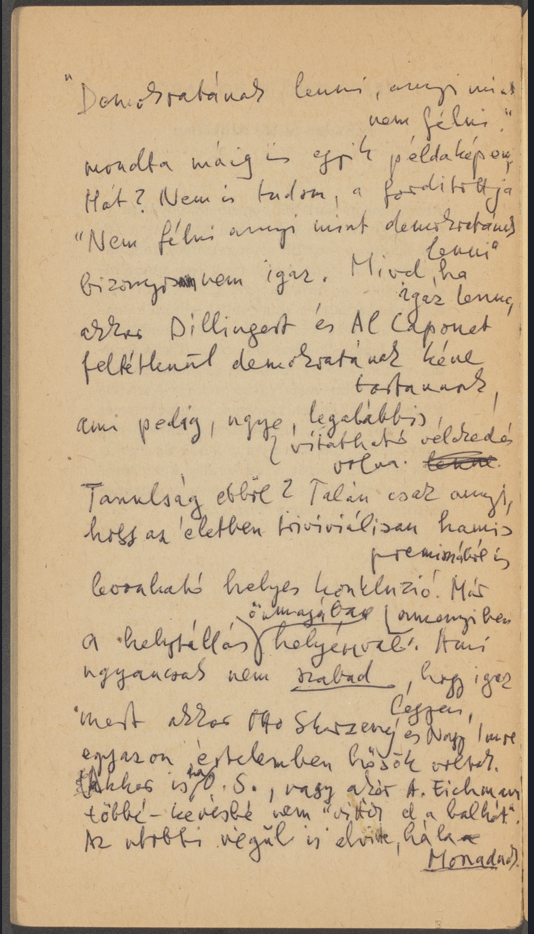 "Demokratának lenni, annyi mint
nem félni."
mondta máig is egyik példaképem,
Hát? Nem is tudom, a fordítottja
"Nem félni annyi mint demokratának
lenni"
bizonyosan nem igaz. Mivel, ha
igaz lenne,
akkor Dillingert és Al Caponet
feltétlenül demokratának kéne
tartanunk,
ami pedig, ugye, legalábbis,
vitatható vélekedés
volna.
Tanulság ebből? Talán csak annyi,
hogy az életben triviálisan hamis
premisszából is
levonható helyes konklúzió. Már
önmagában amennyiben
a helytállás helyénvaló. Ami
ugyancsak nem szabad, hogy igaz
legyen,
mert akkor Otto Skorzeny és Nagy Imre
egyazon értelemben hősök voltak.
Akkor is, ha O. S., vagy akár A. Eichmann
többé-kevésbé nem "vitték el a balhét".
Az utóbbi végül is elvitte, hála a
Moszadnak.